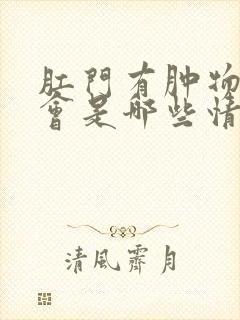 肛門有肿物
會是哪些情
清風霽月